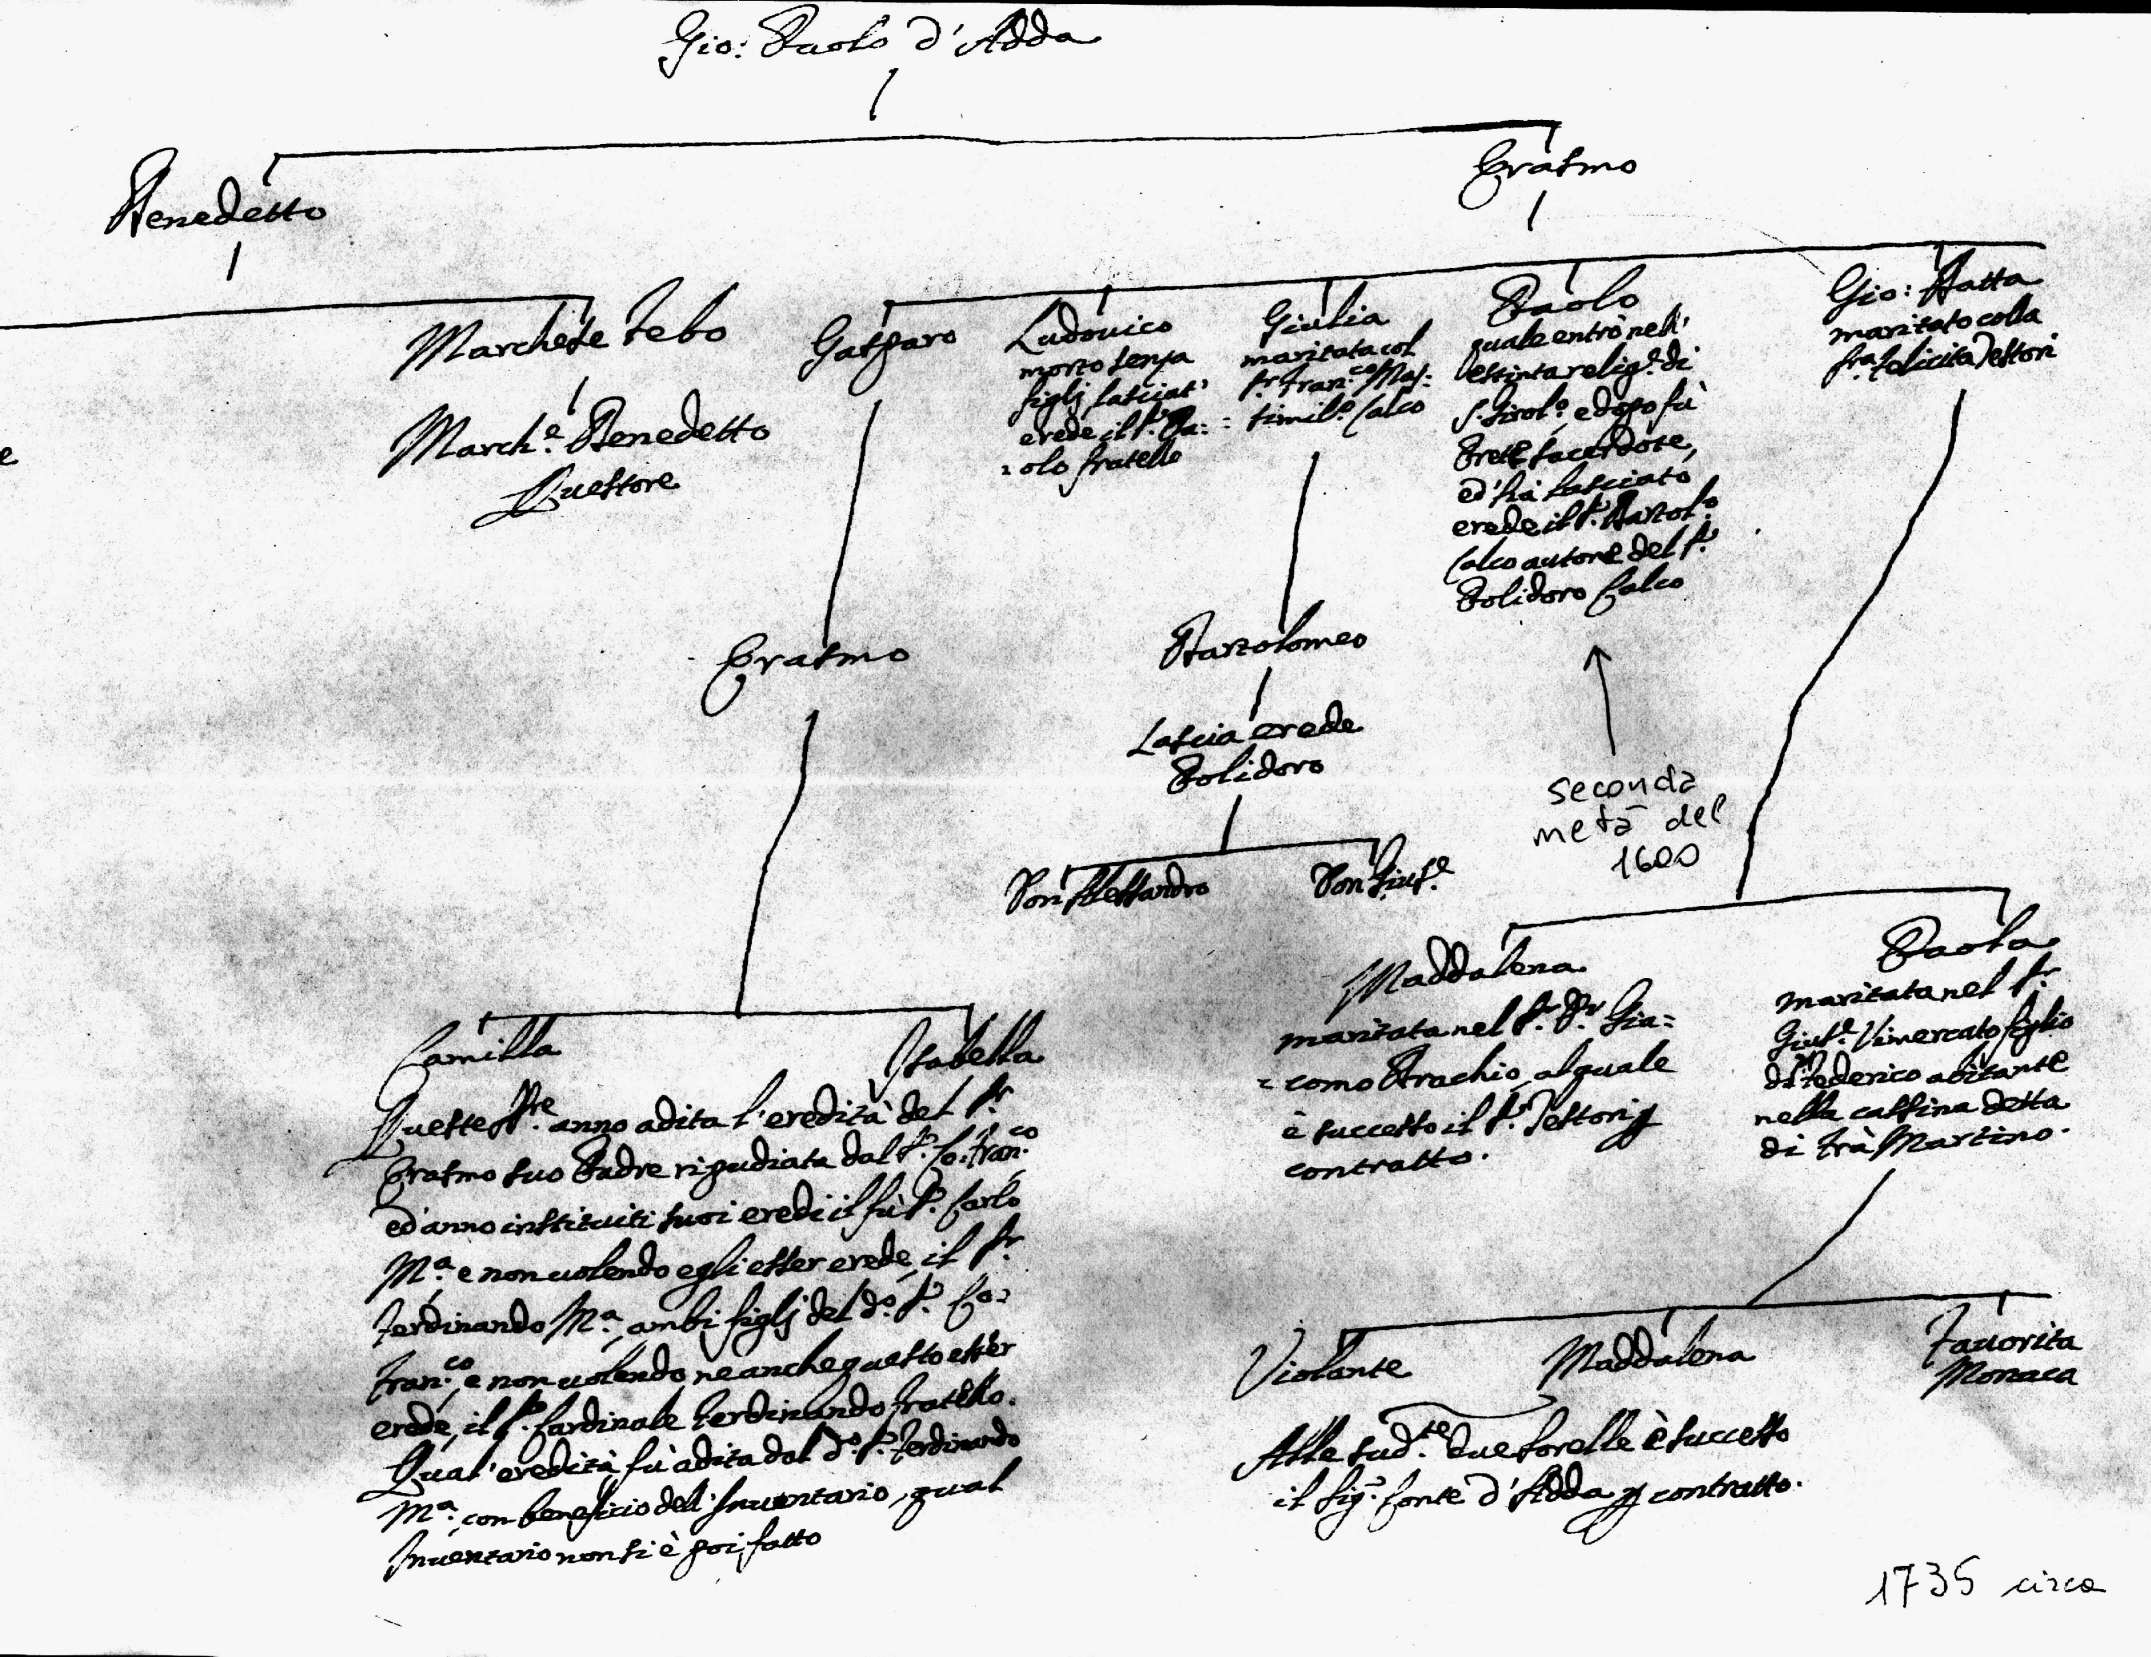 Gio: Paolo d'Adda
Benedetto
Erasmo
Marchese Febo
March.e Benedetto
Questore
e
Gasparo
Ludouico
morto senza
figlj lasciat'
erede il S.r Pa:
=olo fratello
Giulia
maritata col
Sr. Fran.co Mas:
=simil.o Calco
Paolo
quale entrò nell'
estinta relig.e di
S. Girol.o, e dopo fù
Prete sacerdote,
ed' hà lasciato
erede il S.r Bartol.o
Calco autore del S.r
Polidoro Calco
Gio: Batta
maritato colla
Sra. Felicita Testori
Erasmo
Bartolomeo
Lascia erede
Polidoro
Don Alessandro
Don Gius.e
seconda
metà del
1600
Camilla
Isabella
Queste anno adita l'eredità del Sr.
Erasmo suo Padre ripudiata dal S.r Co: Fran.co
ed' anno instituiti suoi eredi il fù S.r Carlo
M.a e non uolendo egli esser erede, il Sr.
Ferdinando M.a, ambi figlj del d.o S.r Co:
Fran.co, e non uolendo ne anche questo esser
erede, il S.r Cardinale Ferdinando fratello.
Qual' eredità fù adita dal d.o S.r Ferdinando
M.a, con beneficio dell' Inuentario, qual
Inuentario non si è poi fatto
Maddalena
maritata nel S.r Dr. Gia:
=como Brachio, al quale
è successo il S.r Testori p
contratto.
Paola
maritata nel Sr.
Gius.e Vimercato figlio
di Federico abitante
nella cassina detta
di Frà Martino.
Violante
Maddalena
Fauorita
Monaca
Alle sud.te due sorelle è successo
il Sig.r Conte d'Adda p contratto.
1735 circa